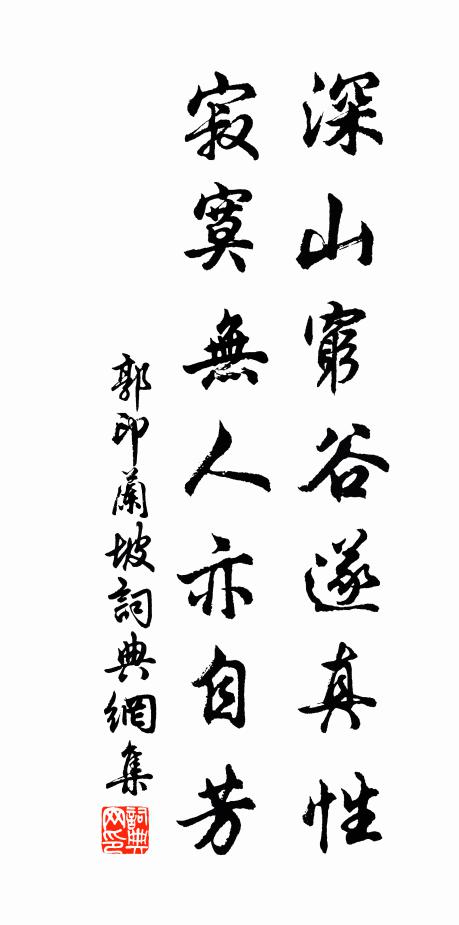 深山窮谷遂真性
寂寞無人亦自芳
郭印蘭坡詞典網集
詞典网印